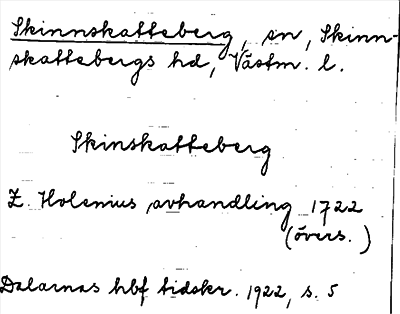 Skinnskatteberg, sn, Skinn-
skattebergs hd, Västm. l.
Skinskatteberg
Z. Holenius avhandling 1722
(övers.)
Dalarnas hbf tidskr. 1922, s. 5